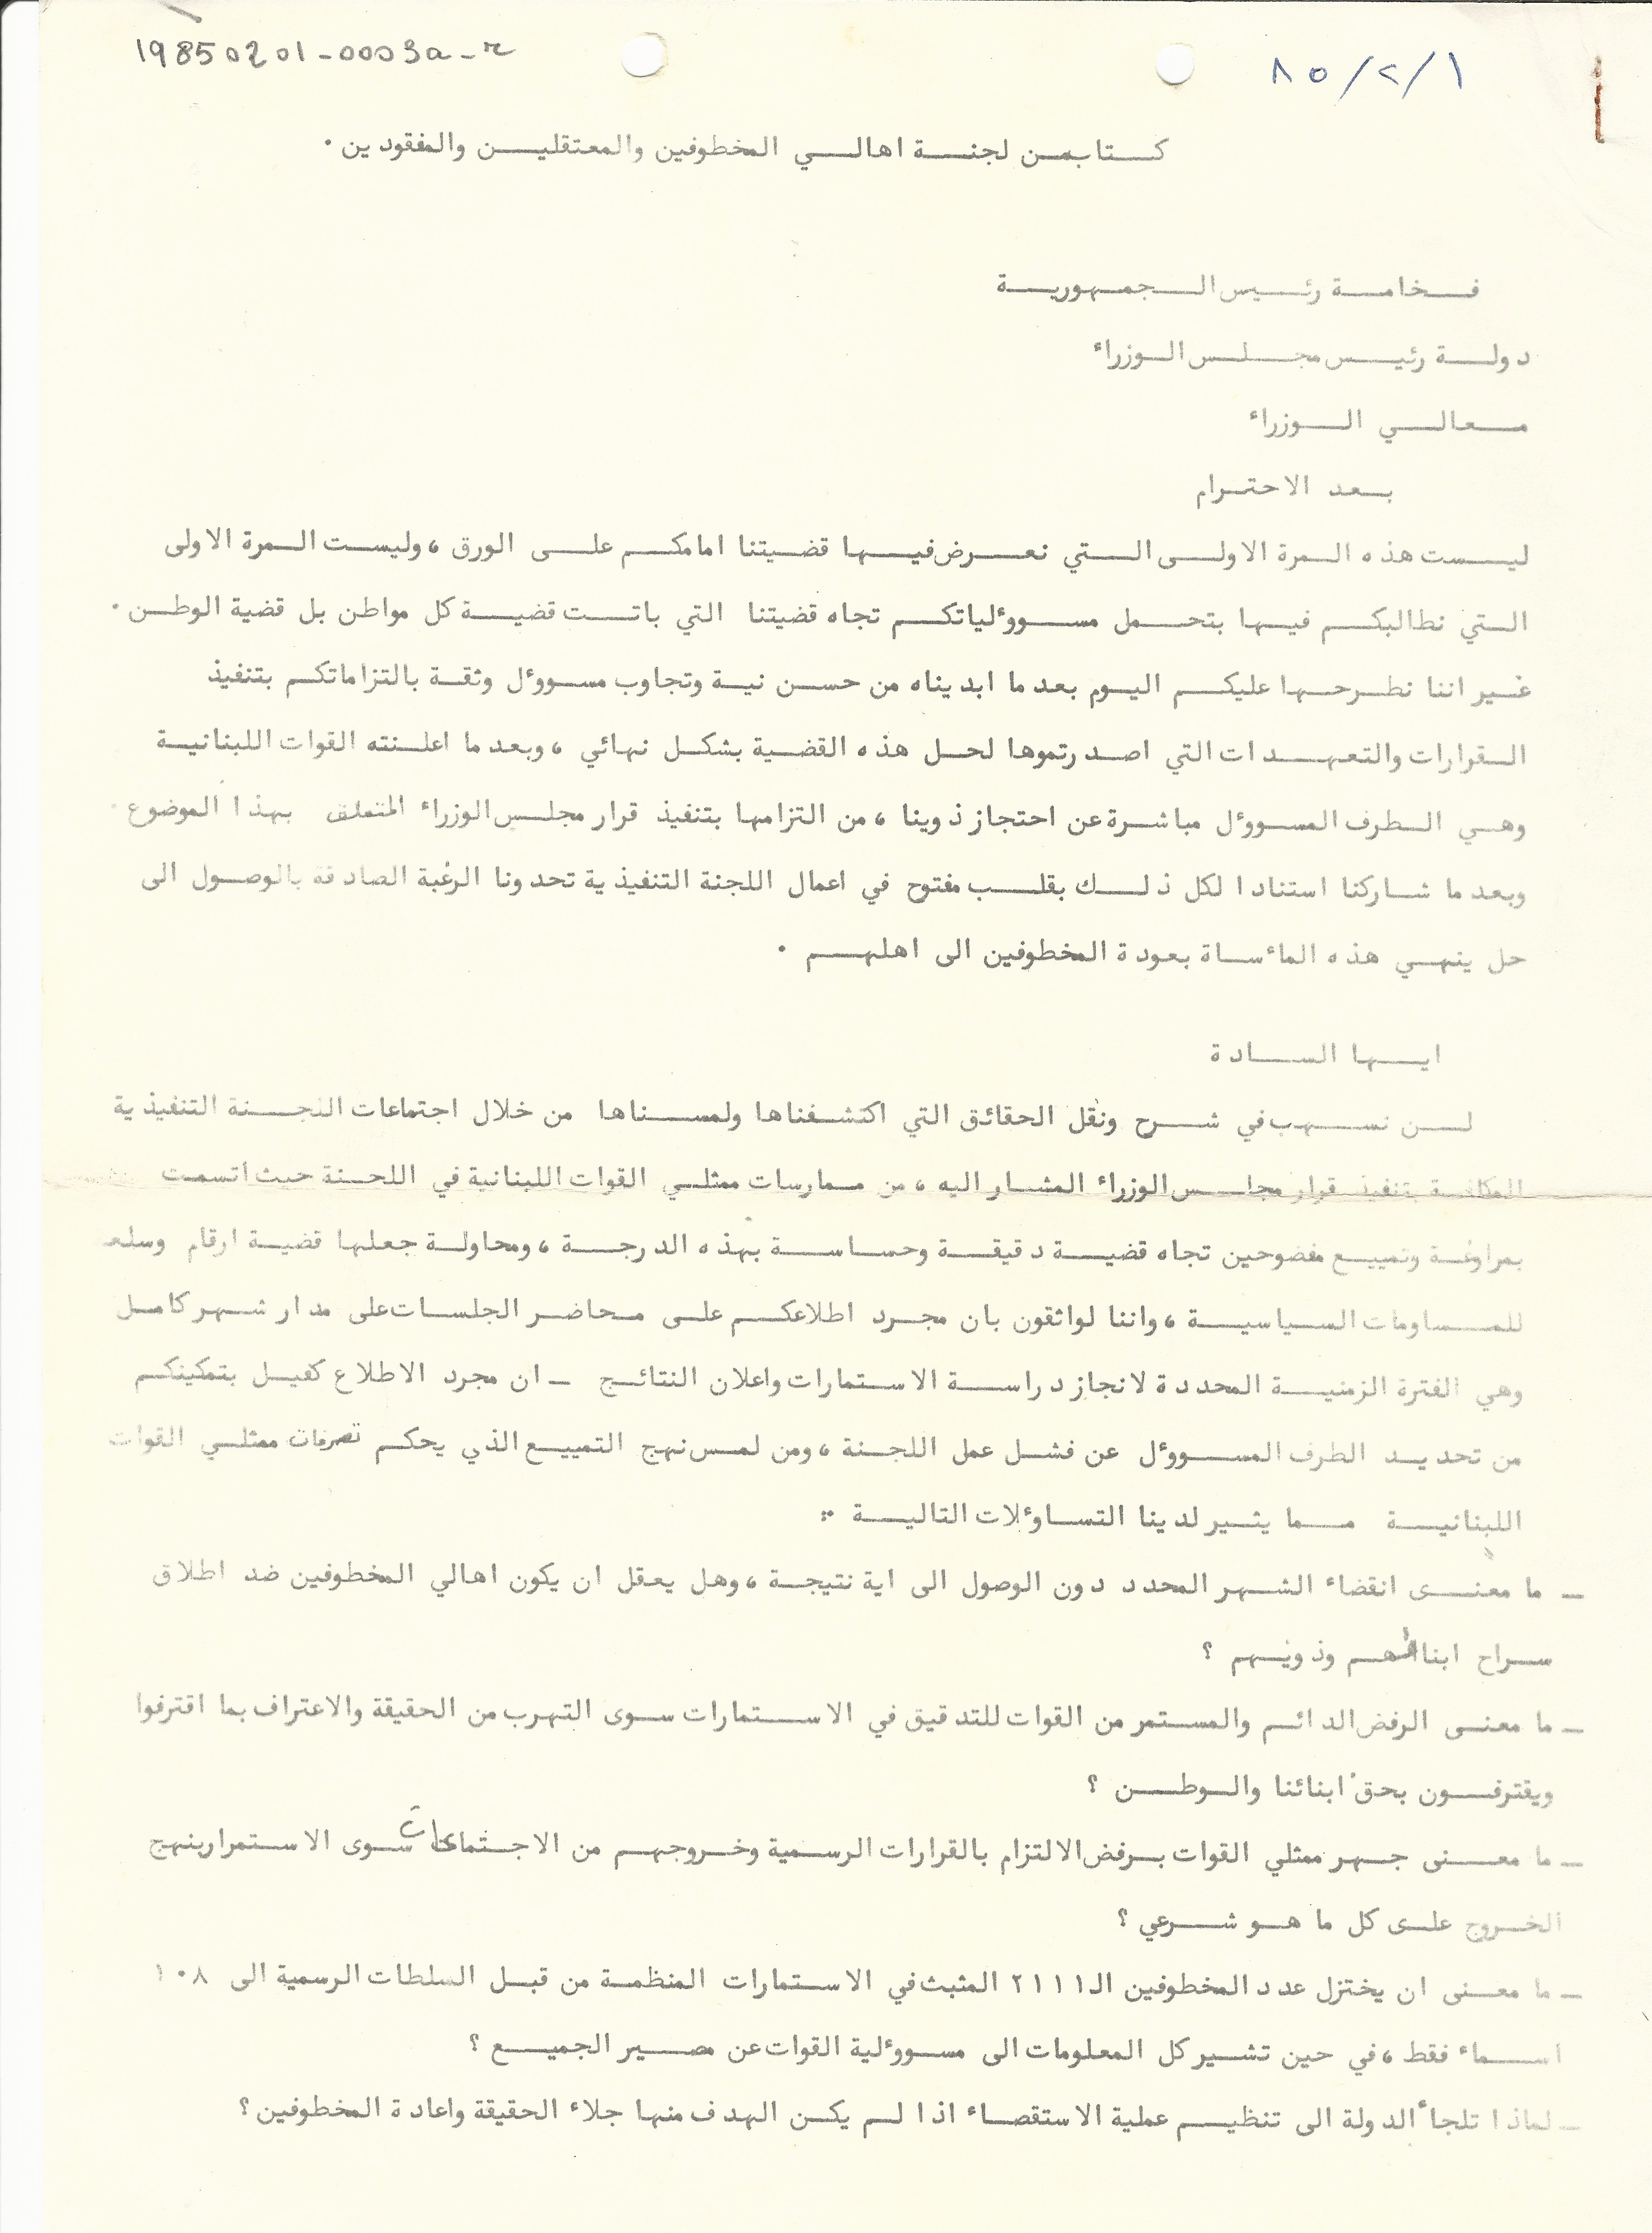 19850201-0003a-r
٨٥/٢/١
كتاب من لجنة اهالي المخطوفين والمعتقلين والمفقودين ٠
فخامة رئيس الجمهورية
دولة رئيس مجلس الوزراء
معالي الوزراء
بعد الاحترام
ليست هذه المرة الاولى التي نعرض فيها قضيتنا امامكم على الورق ، وليست المرة الاولى
التي نطالبكم فيها بتحمل مسوؤلياتكم تجاه قضيتنا التي باتت قضية كل مواطن بل قضية الوطن ٠
غير اننا نطرحها عليكم اليوم بعد ما ابديناه من حسن نية وتجاوب مسوؤل وثقة بالتزاماتكم بتنفيذ
القرارات والتعهدات التي اصدرتموها لحل هذه القضية بشكل نهائي ، وبعد ما اعلنته القوات اللبنانية
وهي الطرف المسوؤل مباشرة عن احتجاز ذوينا ، من التزامها بتنفيذ قرار مجلس الوزراء المتعلق بهذا الموضوع ٠
وبعد ما شاركنا استنادا لكل ذلك بقلب مفتوح في اعمال اللجنة التنفيذية تحدونا الرغبة الصادقة بالوصول الى
حل ينهي هذه المأساة بعودة المخطوفين الى اهلهم ٠
ايها السادة
لن نسهب في شرح ونقل الحقائق التي اكتشفناها ولمسناها من خلال اجتماعات اللجنة التنفيذية
المكلفة بتنفيذ قرار مجلس الوزراء المشار اليه ، من ممارسات ممثلي القوات اللبنانية في اللجنة حيث أتسمت
بمراوغة وتمييع مفضوحين تجاه قضية دقيقة وحساسة بهذه الدرجة ، ومحاولة جعلها قضية ارقام وسلع
للمساومات السياسية ، واننا لواثقون بان مجرد اطلاعكم على محاضر الجلسات على مدار شهر كامل
وهي الفترة الزمنية المحددة لانجاز دراسة الاستمارات واعلان النتائج ـ ان مجرد الاطلاع كفيل بتمكينكم
من تحديد الطرف المسوؤل عن فشل عمل اللجنة ، ومن لمس نهج التمييع الذي يحكم تصرفات ممثلي القوات
اللبنانية مما يثير لدينا التساوؤلات التالية :
ـ ما معنى انقضاء الشهر المحدد دون الوصول الى اية نتيجة ، وهل يعقل ان يكون اهالي المخطوفين ضد اطلاق
سراح ابنائهم وذويهم ؟
ـ ما معنى الرفض الدائم والمستمر من القوات للتدقيق في الاستمارات سوى التهرب من الحقيقة والاعتراف بما اقترفوا
ويقترفون بحق ابنائنا والوطن ؟
ـ ما معنى جهر ممثلي القوات برفض الالتزام بالقرارات الرسمية وخروجهم من الاجتماعات سوى الاستمرار بنهج
الخروج على كل ما هو شرعي ؟
ـ ما معنى ان يختزل عدد المخطوفين الـ ٢١١١ المثبت في الاستمارات المنظمة من قبل السلطات الرسمية الى ١٠٨
اسماء فقط ، في حين تشير كل المعلومات الى مسوؤلية القوات عن مصير الجميع ؟
ـ لماذا تلجأ الدولة الى تنظيم عملية الاستقصاء اذا لم يكن الهدف منها جلاء الحقيقة واعادة المخطوفين ؟